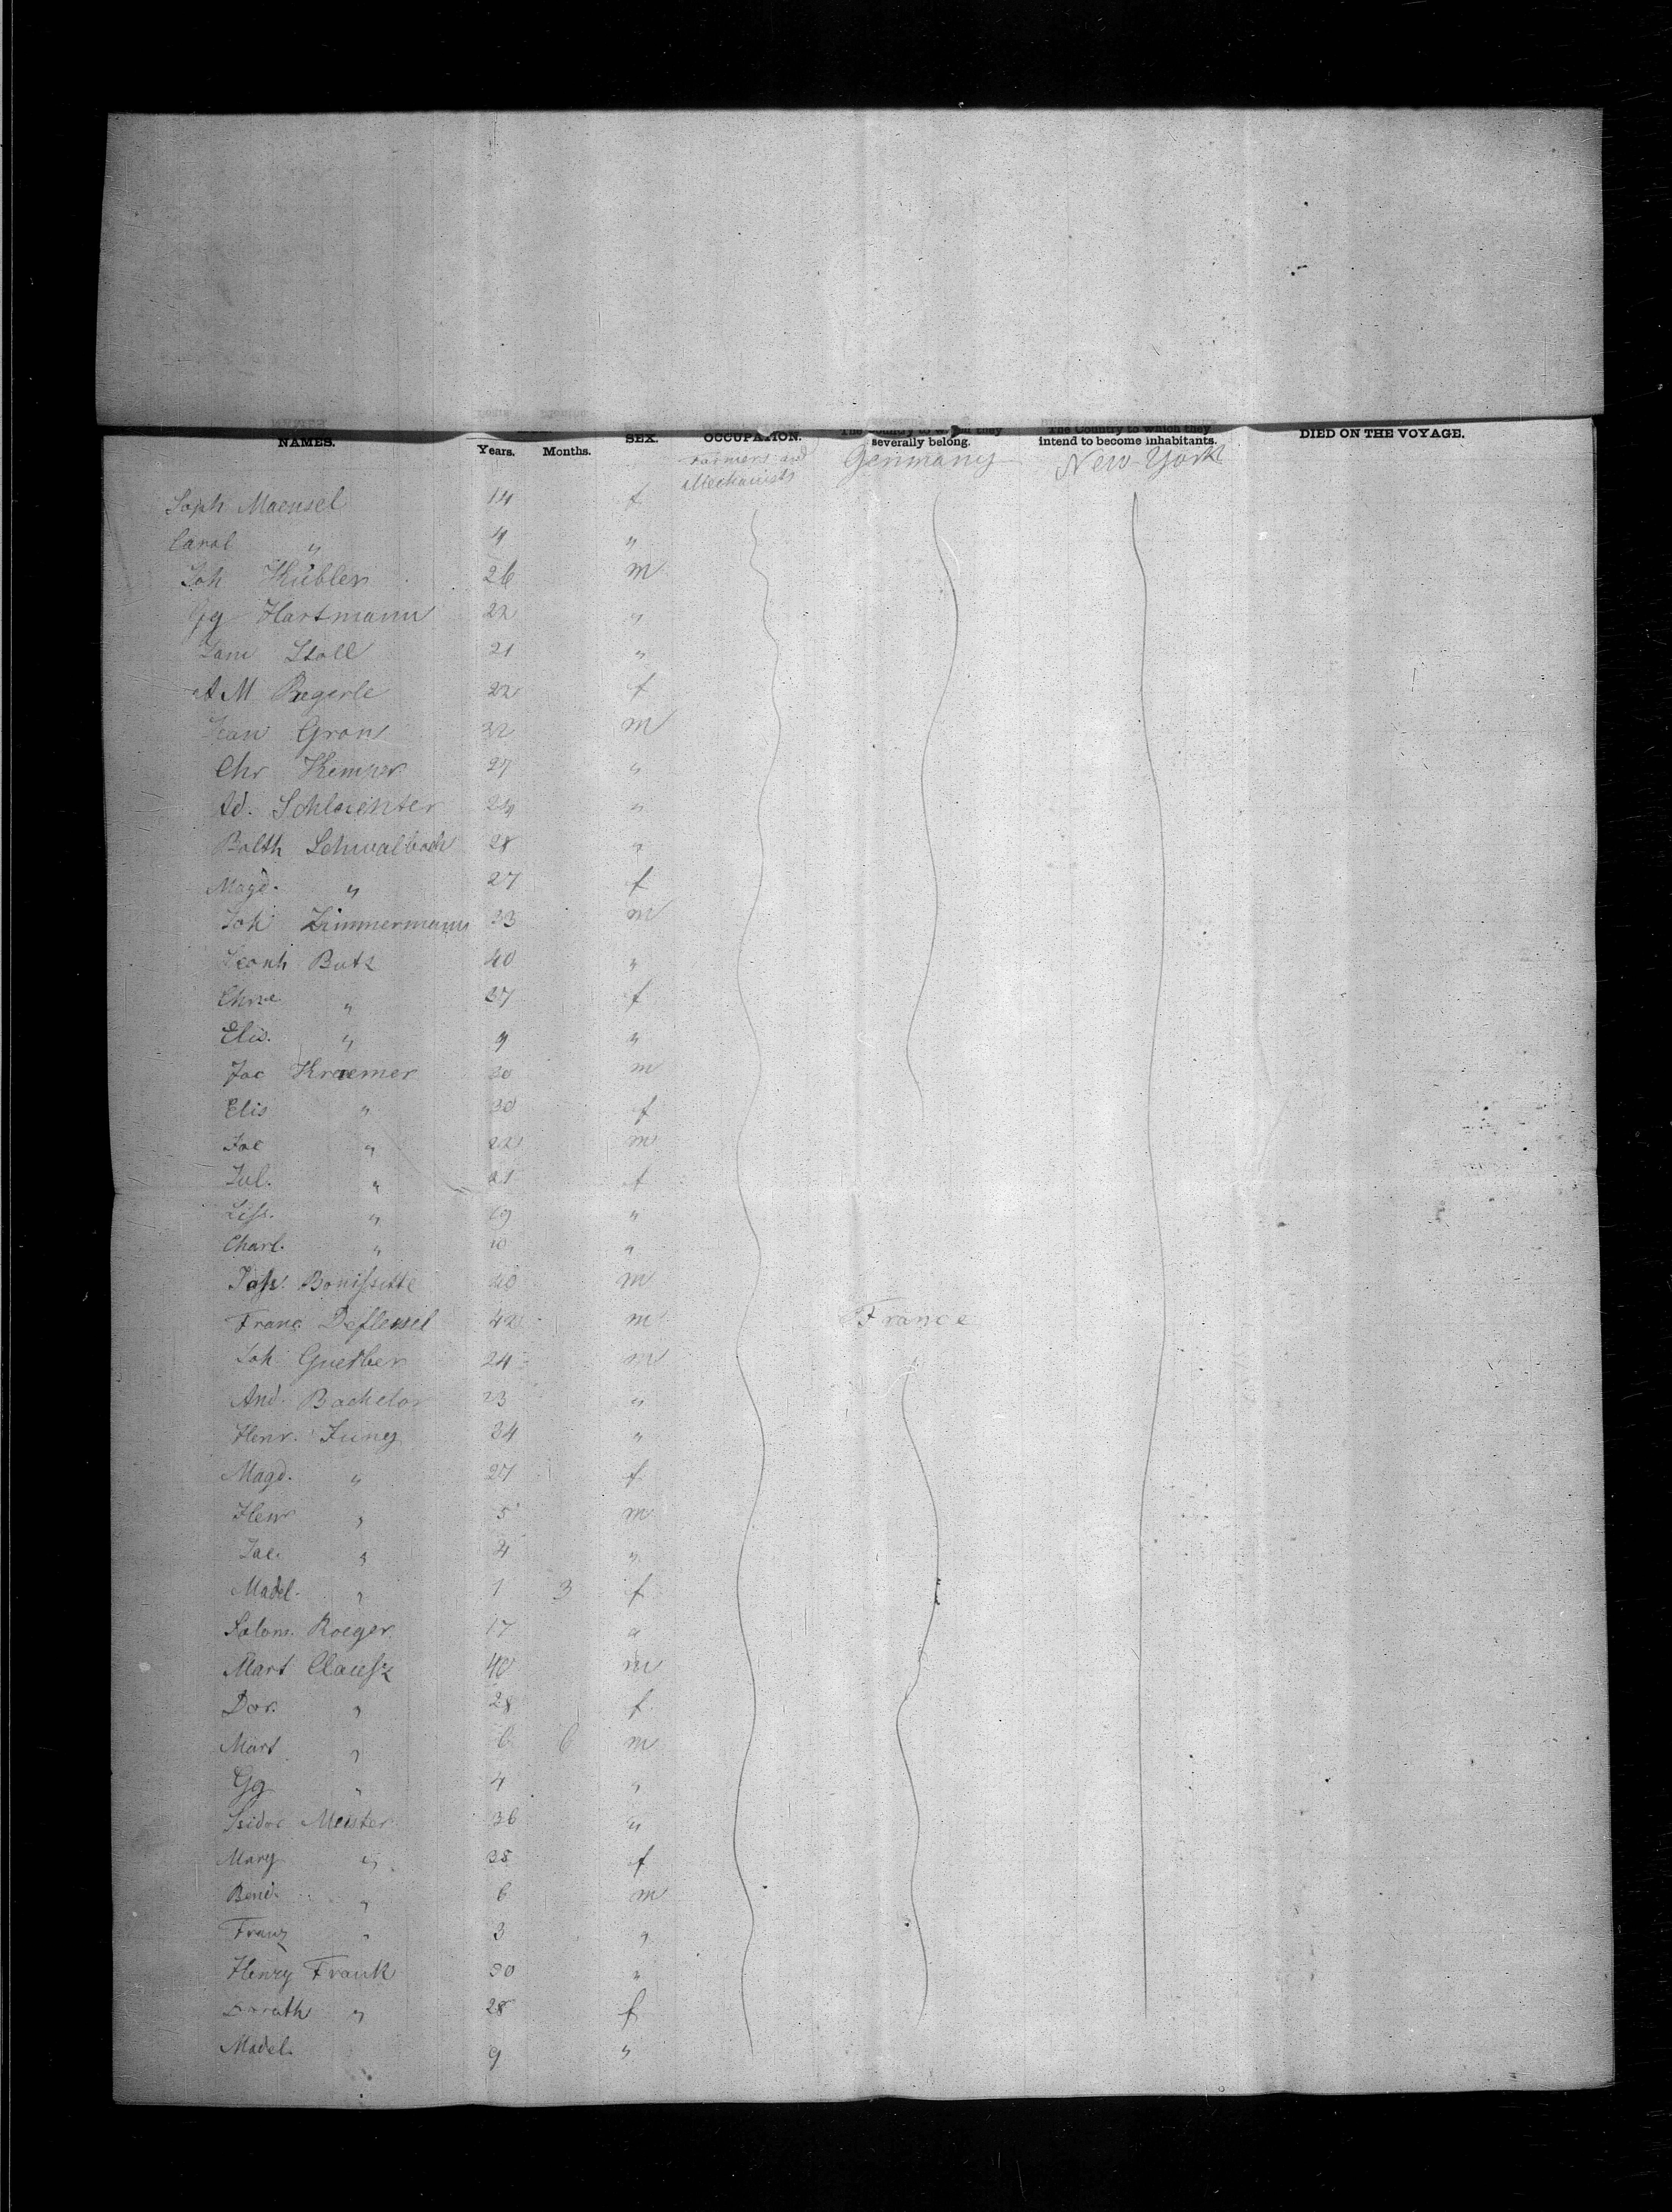 NAMES. Years. Months. SEX. OCCUPATION. The Country to which they severally belong. The Country to which they intend to become inhabitants. DIED ON THE VOYAGE.
Farmers and Mechanists Germany New-York
Soph Maensel 14 f
Carol " 4 "
Joh Kübler 26 m
Gg Hartmann 22 "
Sam Stoll 21 "
AM Begerle 22 f
Jean Gron 32 m
Chr Kemper 27 "
Ad. Schlaichter 24 "
Balth Schwalbach 28 "
Magd. " 27 f
Joh Zimmermann 33 m
Leonh Butz 40 "
Chrne " 37 f
Elis. " 9 "
Jac Kraemer 30 m
Elis " 30 f
Jac " 22 m
Jul. " 21 f
Liss. " 19 "
Charl. " 10 "
Jos. Bonissette 40 m
Franc Deflensel 42 m France
Joh Guerber 24 m
And. Bachelor 23 "
Henr. Jung 34 "
Magd. " 27 f
Henr " 5 m
Jac. " 4 "
Madel. " 1 3 f
Salom. Roeger 17 "
Mart Clausz 40 m
Dor. " 28 f
Mart " 6 6 m
Gg " 4 "
Isidor Meister 36 "
Mary " 38 f
Bend. " 6 m
Franz " 3 "
Henry Frank 30 "
Dorath " 28 f
Madel. 9 "